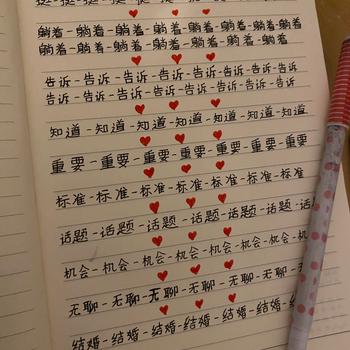 躺着-躺着-躺着-躺着-躺着-躺着-躺着
躺着-躺着-躺着-躺着-躺着-躺着-躺着
告诉-告诉-告诉-告诉-告诉-告诉-告诉-告诉
告诉-告诉-告诉-告诉-告诉-告诉-告诉-告诉
知道-知道-知道-知道-知道-知道-知道
重要-重要-重要-重要-重要-重要-重要
标准-标准-标准-标准-标准-标准-标准
话题-话题-话题-话题-话题-话题-话题
机会-机会-机会-机会-机会-机会-机会
无聊-无聊-无聊-无聊-无聊-无聊-无聊
结婚-结婚-结婚-结婚-结婚-结婚